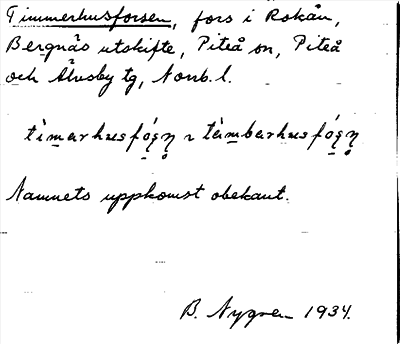 Timmerhusforsen, fors i Rokån,
Bergnäs utskifte, Piteå sn, Piteå
och Älvsby tg, Norrb. l.
Namnets uppkomst obekant.
B. Nygren 1934.